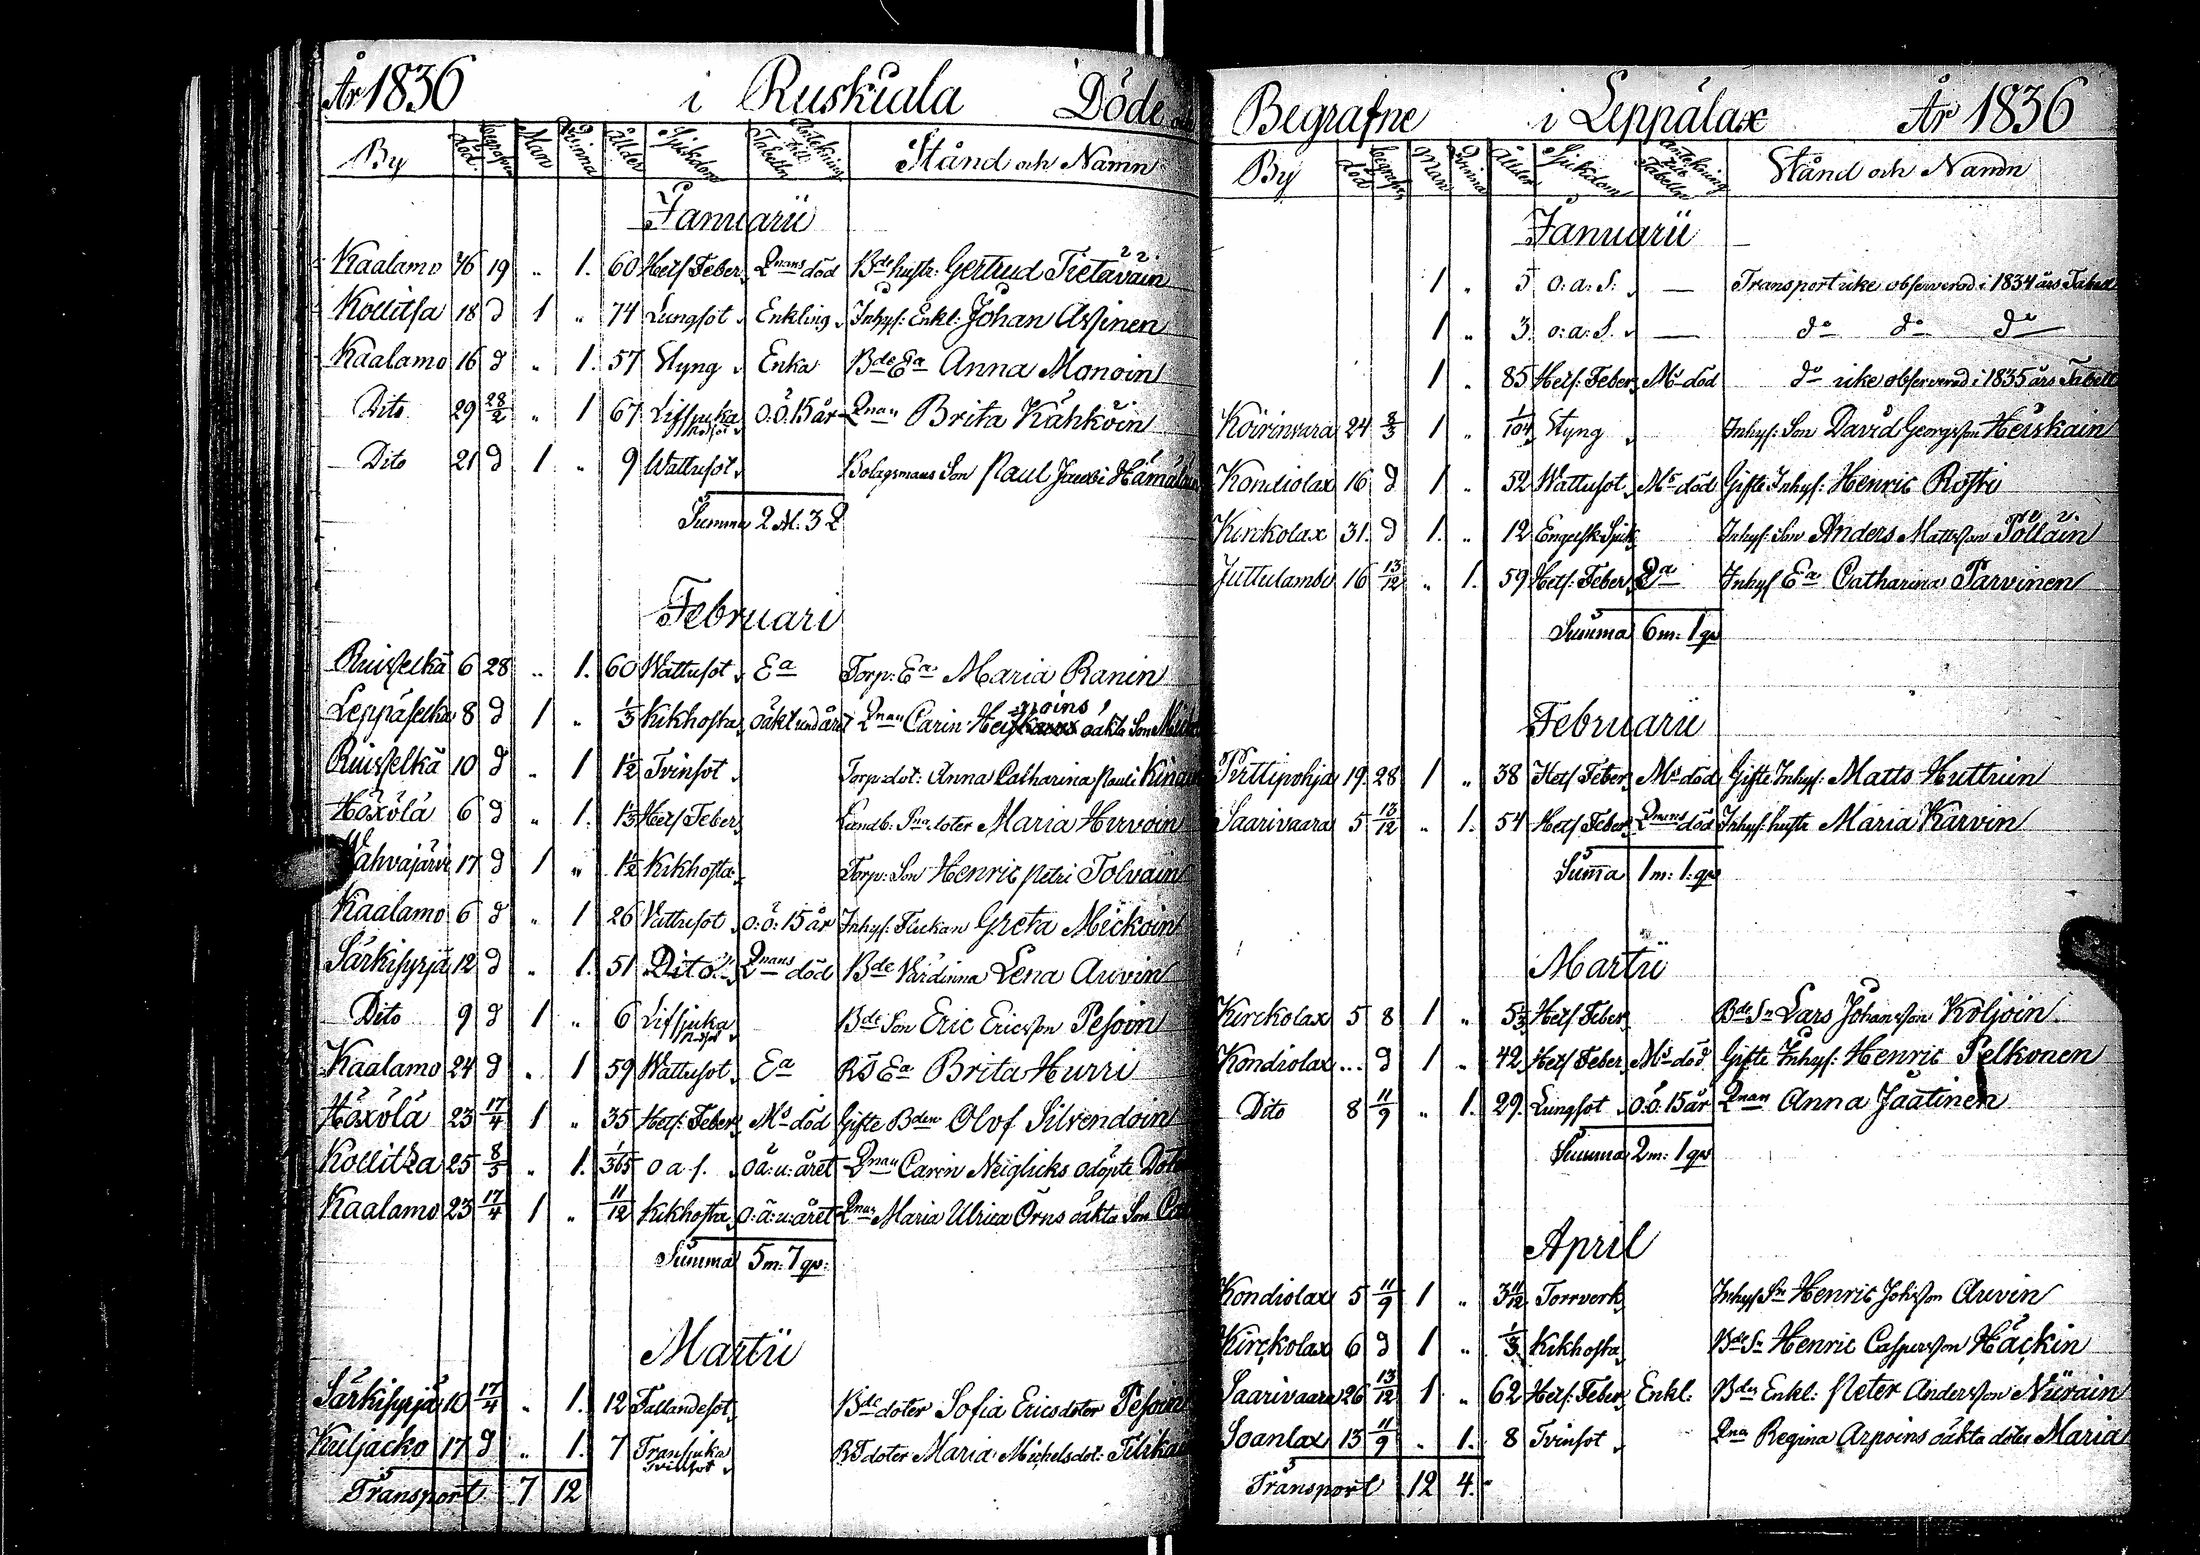 År 1836 i Ruskiala Döde
By död begrafne Man Qvinna Ålder Sjukdom Antekning till Tabellen Stånd och Namn
Januarii
Kaalamo 16 19 " 1. 60 Hets Feber Qnans död Bde hustr: Gertrud Tietäväin
Kollitsa 18 d 1 " 74 Lungsot Enkling Inhys: Enkl: Johan Assinen
Kaalamo 16 d " 1. 57 Styng Enka Bde Ea Anna Monoin
Dito 29 28/2 " 1 67 o.ö. 15 år Qnan Brita Kähköin
Dito 21 d 1 " 9 Wattusot Bolagsmans Son Paul Jacobi
Summa 2 M. 3 Q
Februari
Ruisselkä 6 28 " 1. 60 Wattusot Ea Torp: Ea Maria Ranin
Leppäselkä 8 d 1 " 1/3 Kikhosta oäkt und året Qnan Carin oäkta Son
Ruisselkä 10 d " 1 1 1/2 Tvinsot Torp: dot: Anna Catharina Pauli
Höxölä 6 d " 1. 1 1/3 Hets Feber Landb: doter Maria Hirvoin
Wahvajärvi 17 d 1 " 1 1/2 Kikhosta Torp: Son Henric Petri Tolvain
Kaalamo 6 d " 1 26 Vattusot o: ö: 15 år Inhys: Flickan Greta Mickoin
Särkisyrjä 12 d " 1. 51 Dito Qnans död Bde Värdinna Lena Auvin
Dito 9 d 1 " 6 Bde Son Eric Ericsson Pesoin
Kaalamo 24 d " 1 59 Wattusot Ea Ea Brita Hurri
Höxölä 23 17/4 1 " 35 Hets: Feber Ms död Gifte Bden Olof Silvendoin
Kollitza 25 8/3 " 1. 1/365 o a s. oä: u: året Qnan Carin Neiglicks odöpte
Kaalamo 23 17/4 1 " 11/12 Kikhosta o: ä: u: året Qnas Maria Ulrica Örns oäkta Son
Summa 5 m: 7 qv:
Martii
Särkisyrjä 10 17/4 " 1. 12 Fallandesot Bde doter Sofia Ericsdoter Pesoin
Kuljacko 17 d " 1. 7 Tvinsot doter Maria Michelsdot:
Transport 7 12
Begrafne i Leppälax År 1836
By död begrafne Man Qvinna Ålder Sjukdom Antekning till Tabellen Stånd och Namn
Januarii
1 " 5 o: a: S: — Transport icke observerad i 1834 års Tabell
1 " 3 o: a: S. — do do do
1 " 85 Hets: Feber Ms död do icke observerad i 1835 års Tabell
Koirinvara 24 8/3 1 " 1/104 Styng Inhys: Son David Georgsson Heiskain
Kondiolax 16 d 1 " 52 Wattusot Ms död Gifte Inhys: Henric Rossi
Kirckolax 31. d 1. " 12 Engelsk Sjuk Inhys: Son Anders Mattsson Pölläin
Juttulambi 16 13/12 " 1. 59 Hets: Feber Ea Inhys Ea Catharina Parvinen
Summa 6 m: 1 qv
Februarii
Perttipohja 19 28 1 " 38 Hets Feber Ms död Gifte Inhys: Matts Huttuin
Saarivaara 5 13/12 " 1. 54 Hets Feber Qnans död Inhys: hustr Maria Karvin
Summa 1 m: 1. qv
Martii
Kirckolax 5 8 1 " 5 1/3 Hets Feber Bde Sn Lars Johansson Koljoin
Kondiolax ... d 1 " 42 Hets Feber Ms död Gifte Inhys: Henric Pelkonen
Dito 8 11/9 " 1. 29. Lungsot o: ö. 15 år Qnan Anna Jäätinen
Summa 2 m: 1 qv
April
Kondiolax 5 11/9 1 " 3 11/12 Torrverk Inhys Sn Henric Johsson Auvin
Kirckolax 6 d 1 " 1/3 Kikhosta Bde Sn Henric Caspersson Häckin
Saarivaara 26 13/12 1 " 62 Hets: Feber Enkl. Bdes Enkl: Peter Andersson Niirain
Soanlax 13 11/9 " 1. 8 Tvinsot Qna Regina Arpoins oäkta doter Maria
Transport 12 4.